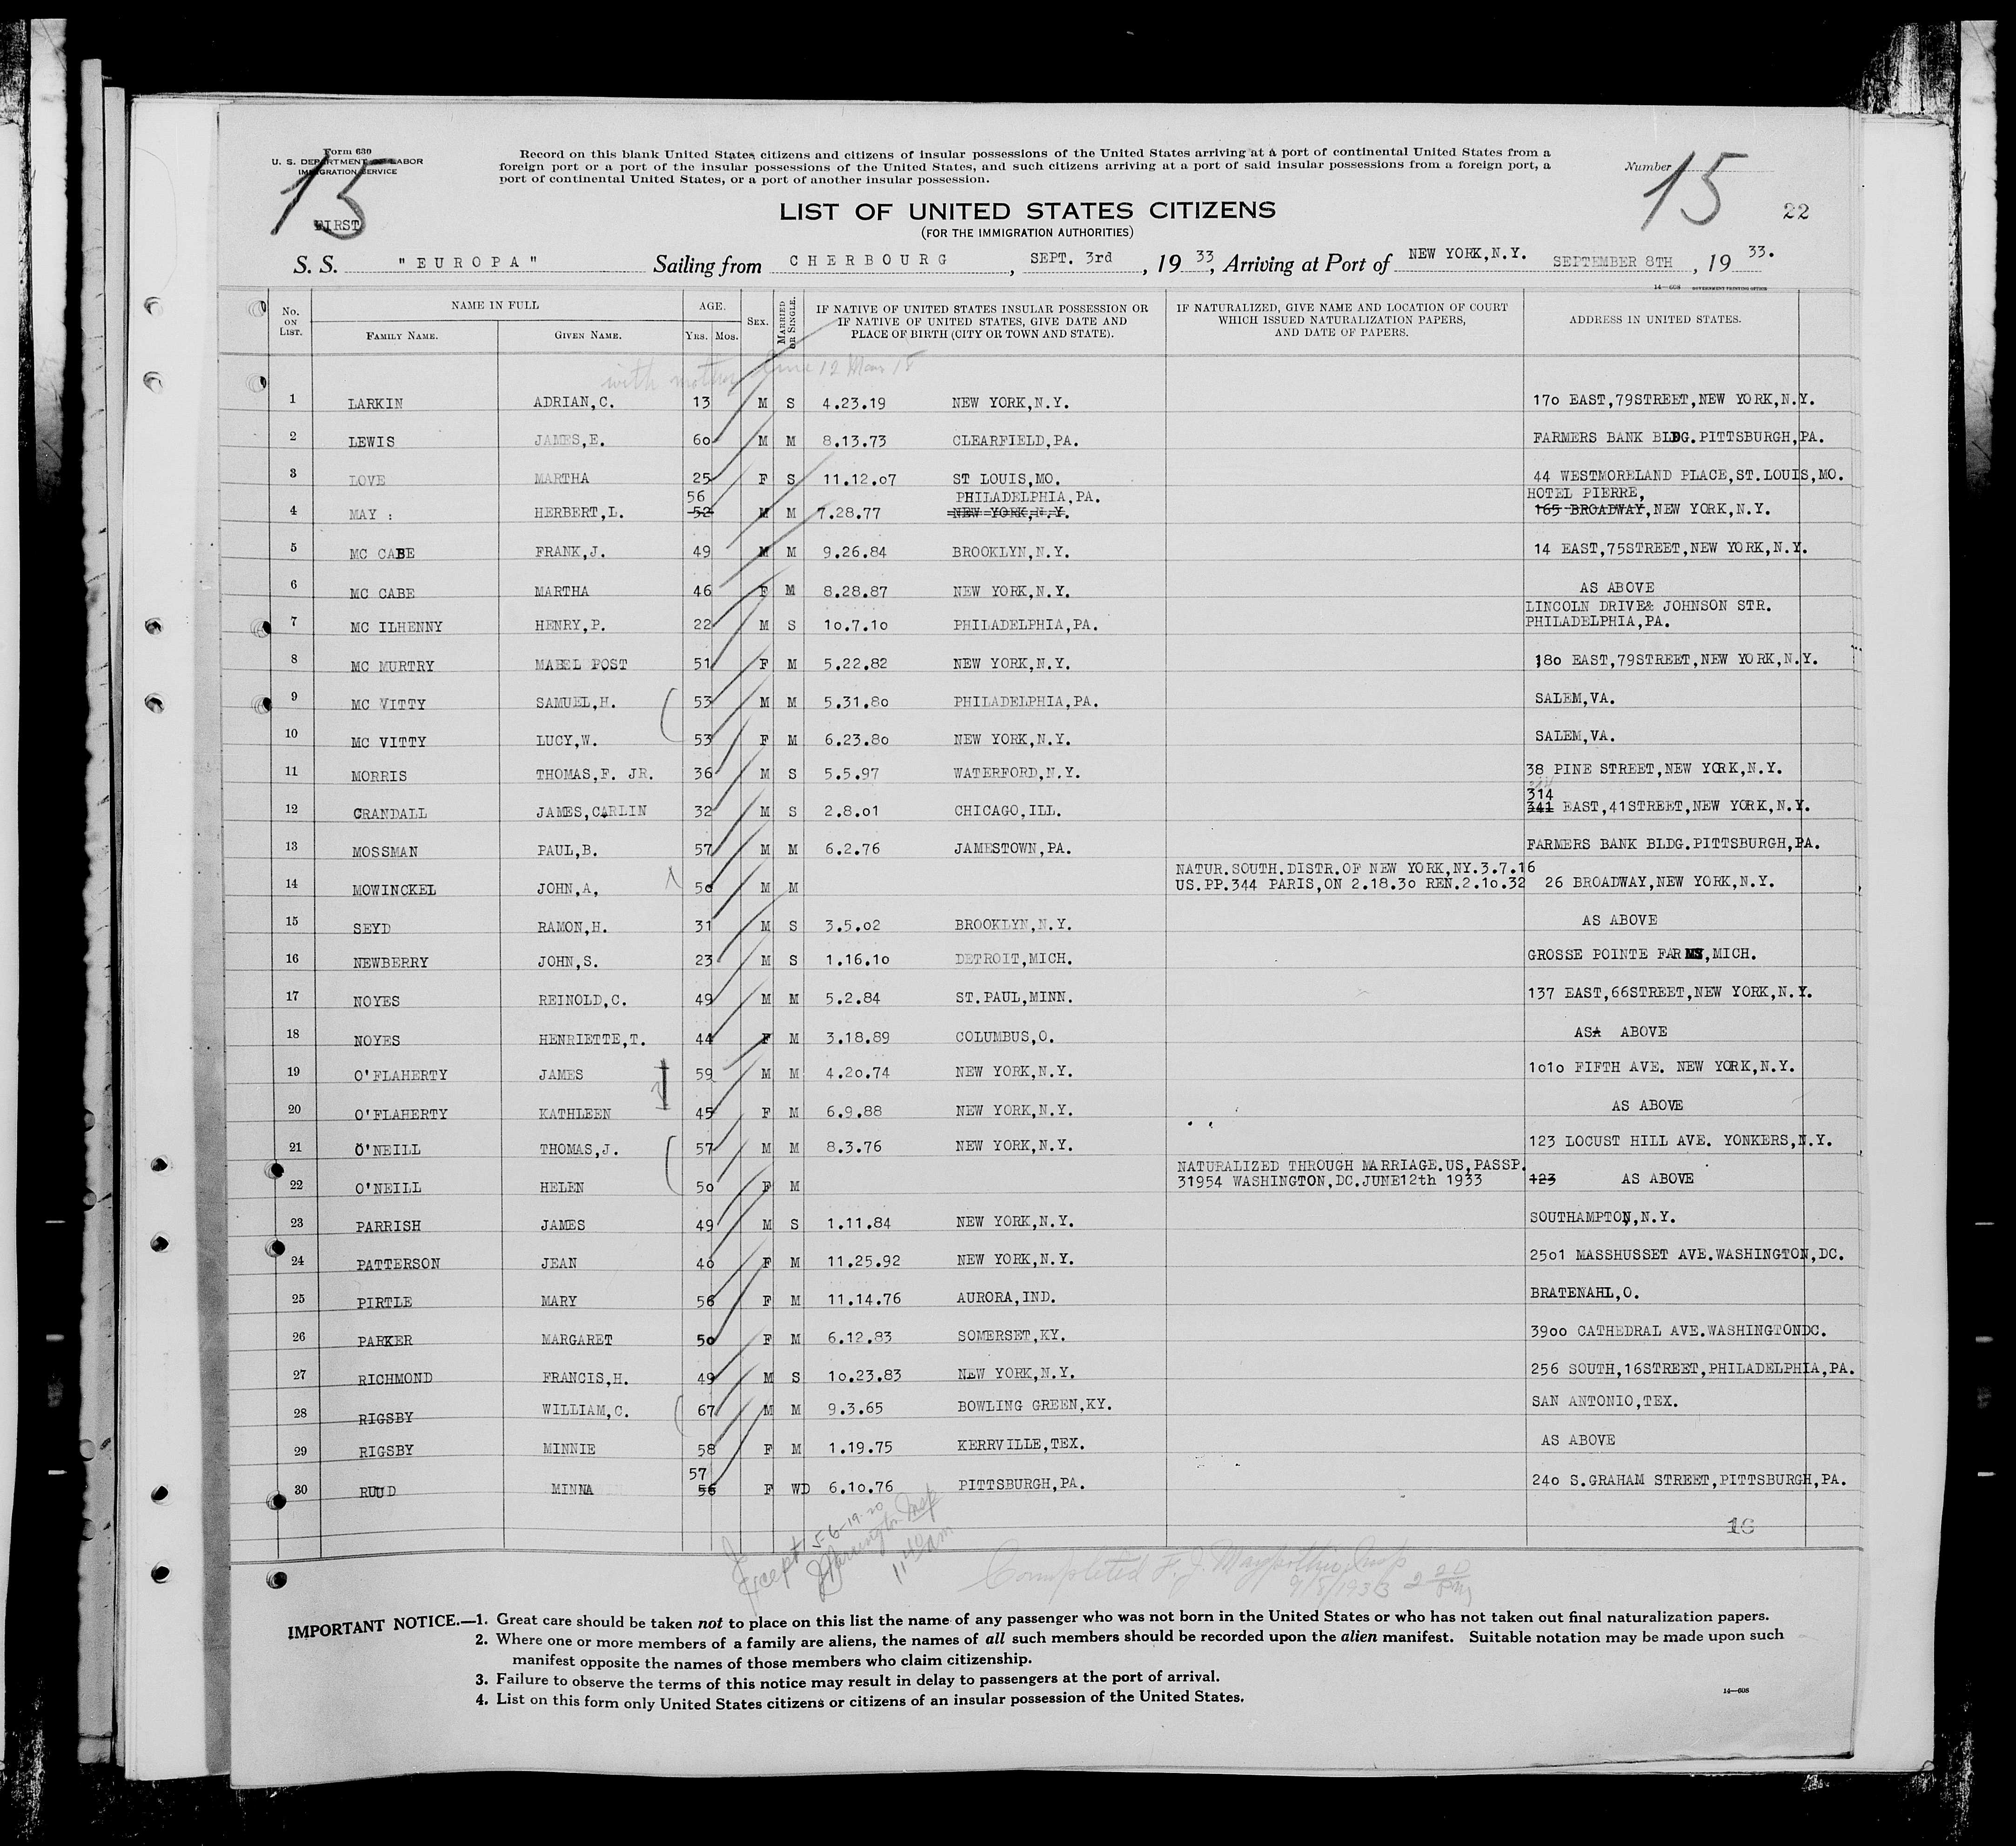 Form 630
U. S. DEPARTMENT OF LABOR
IMMIGRATION SERVICE
15
FIRST
Record on this blank United States citizens and citizens of insular possessions of the United States arriving at a port of continental United States from a
foreign port or a port of the insular possessions of the United States, and such citizens arriving at a port of said insular possessions from a foreign port, a
port of continental United States, or a port of another insular possession.
Number 15
22
LIST OF UNITED STATES CITIZENS
(FOR THE IMMIGRATION AUTHORITIES)
S. S. "EUROPA" Sailing from CHERBOURG, SEPT. 3rd, 1933, Arriving at Port of NEW YORK,N.Y. SEPTEMBER 8TH, 1933.
14—608 GOVERNMENT PRINTING OFFICE
No. ON LIST. NAME IN FULL FAMILY NAME. GIVEN NAME. AGE. YRS. MOS. SEX. MARRIED OR SINGLE. IF NATIVE OF UNITED STATES INSULAR POSSESSION OR IF NATIVE OF UNITED STATES, GIVE DATE AND PLACE OF BIRTH (CITY OR TOWN AND STATE). IF NATURALIZED, GIVE NAME AND LOCATION OF COURT WHICH ISSUED NATURALIZATION PAPERS, AND DATE OF PAPERS. ADDRESS IN UNITED STATES.
with mother line 12 Man 15
1 LARKIN ADRIAN,C. 13 M S 4.23.19 NEW YORK,N.Y. 170 EAST,79STREET,NEW YORK,N.Y.
2 LEWIS JAMES,E. 60 M M 8.13.73 CLEARFIELD,PA. FARMERS BANK BLDG.PITTSBURGH,PA.
3 LOVE MARTHA 25 F S 11.12.07 ST LOUIS,MO. 44 WESTMORELAND PLACE,ST.LOUIS,MO.
56 PHILADELPHIA,PA. HOTEL PIERRE,
4 MAY : HERBERT,L. 52 M M 7.28.77 NEW YORK,N.Y. 165 BROADWAY,NEW YORK,N.Y.
5 MC CABE FRANK,J. 49 M M 9.26.84 BROOKLYN,N.Y. 14 EAST,75STREET,NEW YORK,N.Y.
6 MC CABE MARTHA 46 F M 8.28.87 NEW YORK,N.Y. AS ABOVE
LINCOLN DRIVE& JOHNSON STR.
7 MC ILHENNY HENRY,P. 22 M S 10.7.10 PHILADELPHIA,PA. PHILADELPHIA,PA.
8 MC MURTRY MABEL POST 51 F M 5.22.82 NEW YORK,N.Y. 180 EAST,79STREET,NEW YORK,N.Y.
9 MC VITTY SAMUEL,H. 53 M M 5.31.80 PHILADELPHIA,PA. SALEM,VA.
10 MC VITTY LUCY,W. 53 F M 6.23.80 NEW YORK,N.Y. SALEM,VA.
11 MORRIS THOMAS,F. JR. 36 M S 5.5.97 WATERFORD,N.Y. 38 PINE STREET,NEW YORK,N.Y.
314
12 CRANDALL JAMES,CARLIN 32 M S 2.8.01 CHICAGO,ILL. 341 EAST,41STREET,NEW YORK,N.Y.
13 MOSSMAN PAUL,B. 57 M M 6.2.76 JAMESTOWN,PA. FARMERS BANK BLDG.PITTSBURGH,PA.
NATUR.SOUTH.DISTR.OF NEW YORK,NY.3.7.16
14 MOWINCKEL JOHN,A, 50 M M US.PP.344 PARIS,ON 2.18.30 REN.2.10.32 26 BROADWAY,NEW YORK,N.Y.
15 SEYD RAMON,H. 31 M S 3.5.02 BROOKLYN,N.Y. AS ABOVE
16 NEWBERRY JOHN,S. 23 M S 1.16.10 DETROIT,MICH. GROSSE POINTE FARMS,MICH.
17 NOYES REINOLD,C. 49 M M 5.2.84 ST.PAUL,MINN. 137 EAST,66STREET,NEW YORK,N.Y.
18 NOYES HENRIETTE,T. 44 F M 3.18.89 COLUMBUS,O. ASA ABOVE
19 O'FLAHERTY JAMES 59 M M 4.20.74 NEW YORK,N.Y. 1010 FIFTH AVE. NEW YORK,N.Y.
20 O'FLAHERTY KATHLEEN 45 F M 6.9.88 NEW YORK,N.Y. AS ABOVE
21 O'NEILL THOMAS,J. 57 M M 8.3.76 NEW YORK,N.Y. 123 LOCUST HILL AVE. YONKERS,N.Y.
NATURALIZED THROUGH MARRIAGE.US,PASSP.
22 O'NEILL HELEN 50 F M 31954 WASHINGTON,DC.JUNE12th 1933 123 AS ABOVE
23 PARRISH JAMES 49 M S 1.11.84 NEW YORK,N.Y. SOUTHAMPTON,N.Y.
24 PATTERSON JEAN 40 F M 11.25.92 NEW YORK,N.Y. 2501 MASSHUSSET AVE.WASHINGTON,DC.
25 PIRTLE MARY 56 F M 11.14.76 AURORA,IND. BRATENAHL,O.
26 PARKER MARGARET 50 F M 6.12.83 SOMERSET,KY. 3900 CATHEDRAL AVE.WASHINGTONDC.
27 RICHMOND FRANCIS,H. 49 M S 10.23.83 NEW YORK,N.Y. 256 SOUTH,16STREET,PHILADELPHIA,PA.
28 RIGSBY WILLIAM,C. 67 M M 9.3.65 BOWLING GREEN,KY. SAN ANTONIO,TEX.
29 RIGSBY MINNIE 58 F M 1.19.75 KERRVILLE,TEX. AS ABOVE
57
30 RUUD MINNA 56 F WD 6.10.76 PITTSBURGH,PA. 240 S.GRAHAM STREET,PITTSBURGH,PA.
16
Except 5-6-19-20
Insp
11 40 am
Completed F. J. Insp
9/8/1933 2 20 pm
IMPORTANT NOTICE.—1. Great care should be taken not to place on this list the name of any passenger who was not born in the United States or who has not taken out final naturalization papers.
2. Where one or more members of a family are aliens, the names of all such members should be recorded upon the alien manifest. Suitable notation may be made upon such
manifest opposite the names of those members who claim citizenship.
3. Failure to observe the terms of this notice may result in delay to passengers at the port of arrival.
4. List on this form only United States citizens or citizens of an insular possession of the United States.
14—608